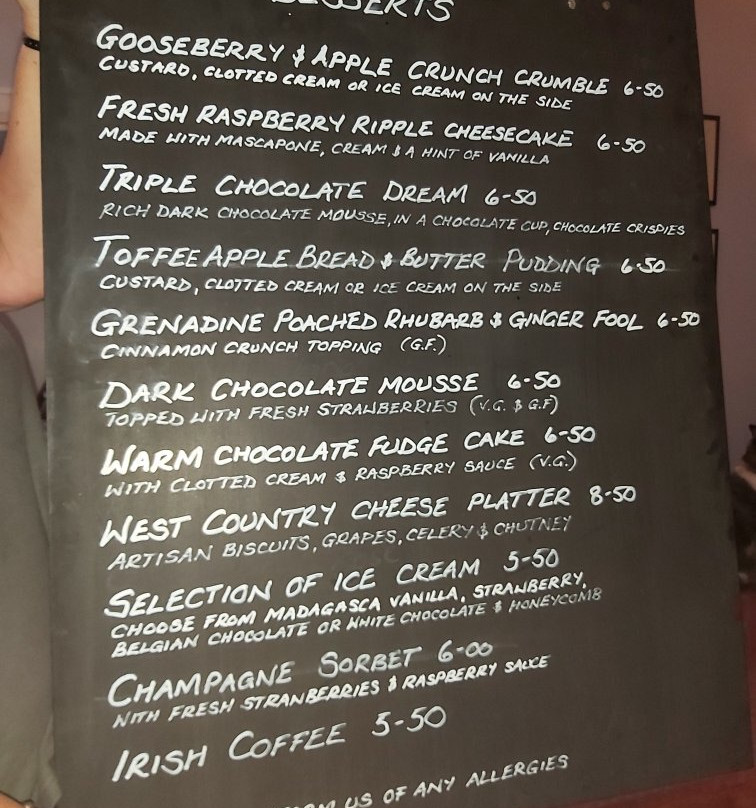 DESSERTS
GOOSEBERRY & APPLE CRUNCH CRUMBLE 6-50
CUSTARD, CLOTTED CREAM OR ICE CREAM ON THE SIDE
FRESH RASPBERRY RIPPLE CHEESECAKE 6-50
MADE WITH MASCAPONE, CREAM & A HINT OF VANILLA
TRIPLE CHOCOLATE DREAM 6-50
RICH DARK CHOCOLATE MOUSSE, IN A CHOCOLATE CUP, CHOCOLATE CRISPIES
TOFFEE APPLE BREAD & BUTTER PUDDING 6-50
CUSTARD, CLOTTED CREAM OR ICE CREAM ON THE SIDE
GRENADINE POACHED RHUBARB & GINGER FOOL 6-50
CINNAMON CRUNCH TOPPING (G.F.)
DARK CHOCOLATE MOUSSE 6-50
TOPPED WITH FRESH STRAWBERRIES (V.G. & G.F)
WARM CHOCOLATE FUDGE CAKE 6-50
WITH CLOTTED CREAM & RASPBERRY SAUCE (V.G.)
WEST COUNTRY CHEESE PLATTER 8-50
ARTISAN BISCUITS, GRAPES, CELERY & CHUTNEY
SELECTION OF ICE CREAM 5-50
CHOOSE FROM MADAGASCA VANILLA, STRAWBERRY,
BELGIAN CHOCOLATE OR WHITE CHOCOLATE & HONEYCOMB
CHAMPAGNE SORBET 6-00
WITH FRESH STRAWBERRIES & RASPBERRY SAUCE
IRISH COFFEE 5-50
US OF ANY ALLERGIES